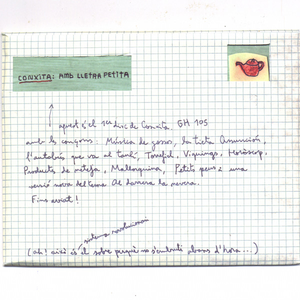 CONXITA: AMB LLETRA PETITA
aquest és el 1er disc de Conxita. GH 105
amb les cançons: Música de gossos, La tieta Assumpció,
l'autobús que va al tard, Vikings, Horòscop,
Productes de neteja, Mallorquina, Petits peus i una
versió nova del tema Al darrera la nevera.
Fins aviat!
sistema revolucionari
(Ah! això és el sobre perquè no s'embruti abans d'hora...)